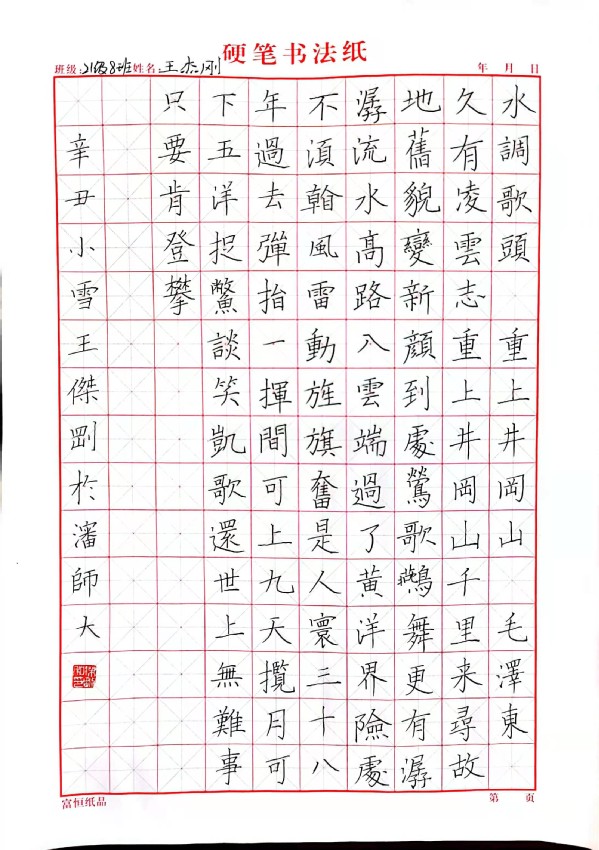 硬笔书法纸
班级:21级8班 姓名:王杰刚 年 月 日
水調歌頭 重上井岡山 毛澤東
久有凌雲志重上井岡山千里来尋故
地舊貌變新顔到處鶯歌鷰舞更有潺
潺流水髙路入雲端過了黄洋界險處
不湏翰風雷動旌旗奮是人寰三十八
年過去彈指一揮間可上九天攬月可
下五洋捉鱉談笑凱歌還世上無難事
只要肯登攀
辛丑小雪王傑剛於瀋師大
富恒纸品 第 页